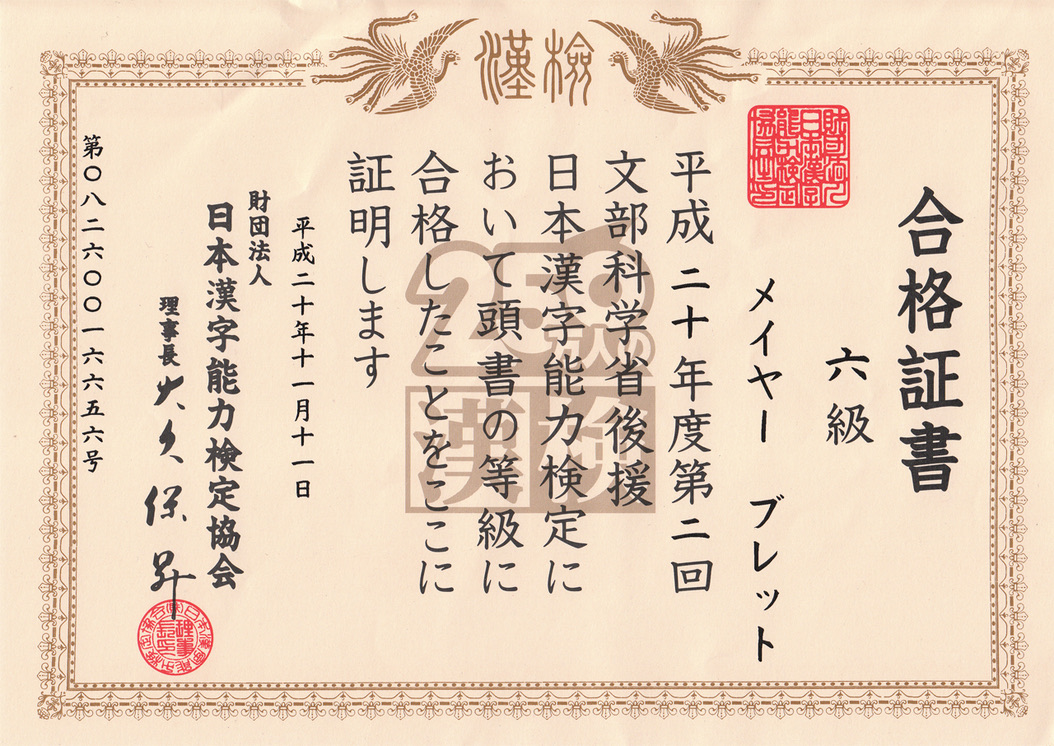 漢検
合格証書
六級
メイヤー ブレット
平成二十年度第二回
文部科学省後援
日本漢字能力検定に
おいて頭書の等級に
合格したことをここに
証明します
平成二十年十一月十一日
財団法人
日本漢字能力検定協会
理事長 大久保昇
第〇八二六〇〇一六六五六号
250万人の
漢検